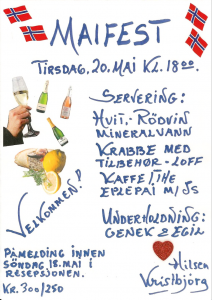 MAIFEST
TIRSDAG, 20. MAI KL. 18.00.
SERVERING:
HVIT- RÖDVIN
MINERALVANN
KRABBE MED
TILBEHØR - LOFF
KAFFE/THE
EPLEPAI M/IS
VELKOMMEN!
UNDERHOLDNING:
GENEK & EGIL
PÅMELDING INNEN
SÖNDAG 18. MAI I
RESEPSJONEN.
KR. 300/250
Hilsen
Kristbjörg